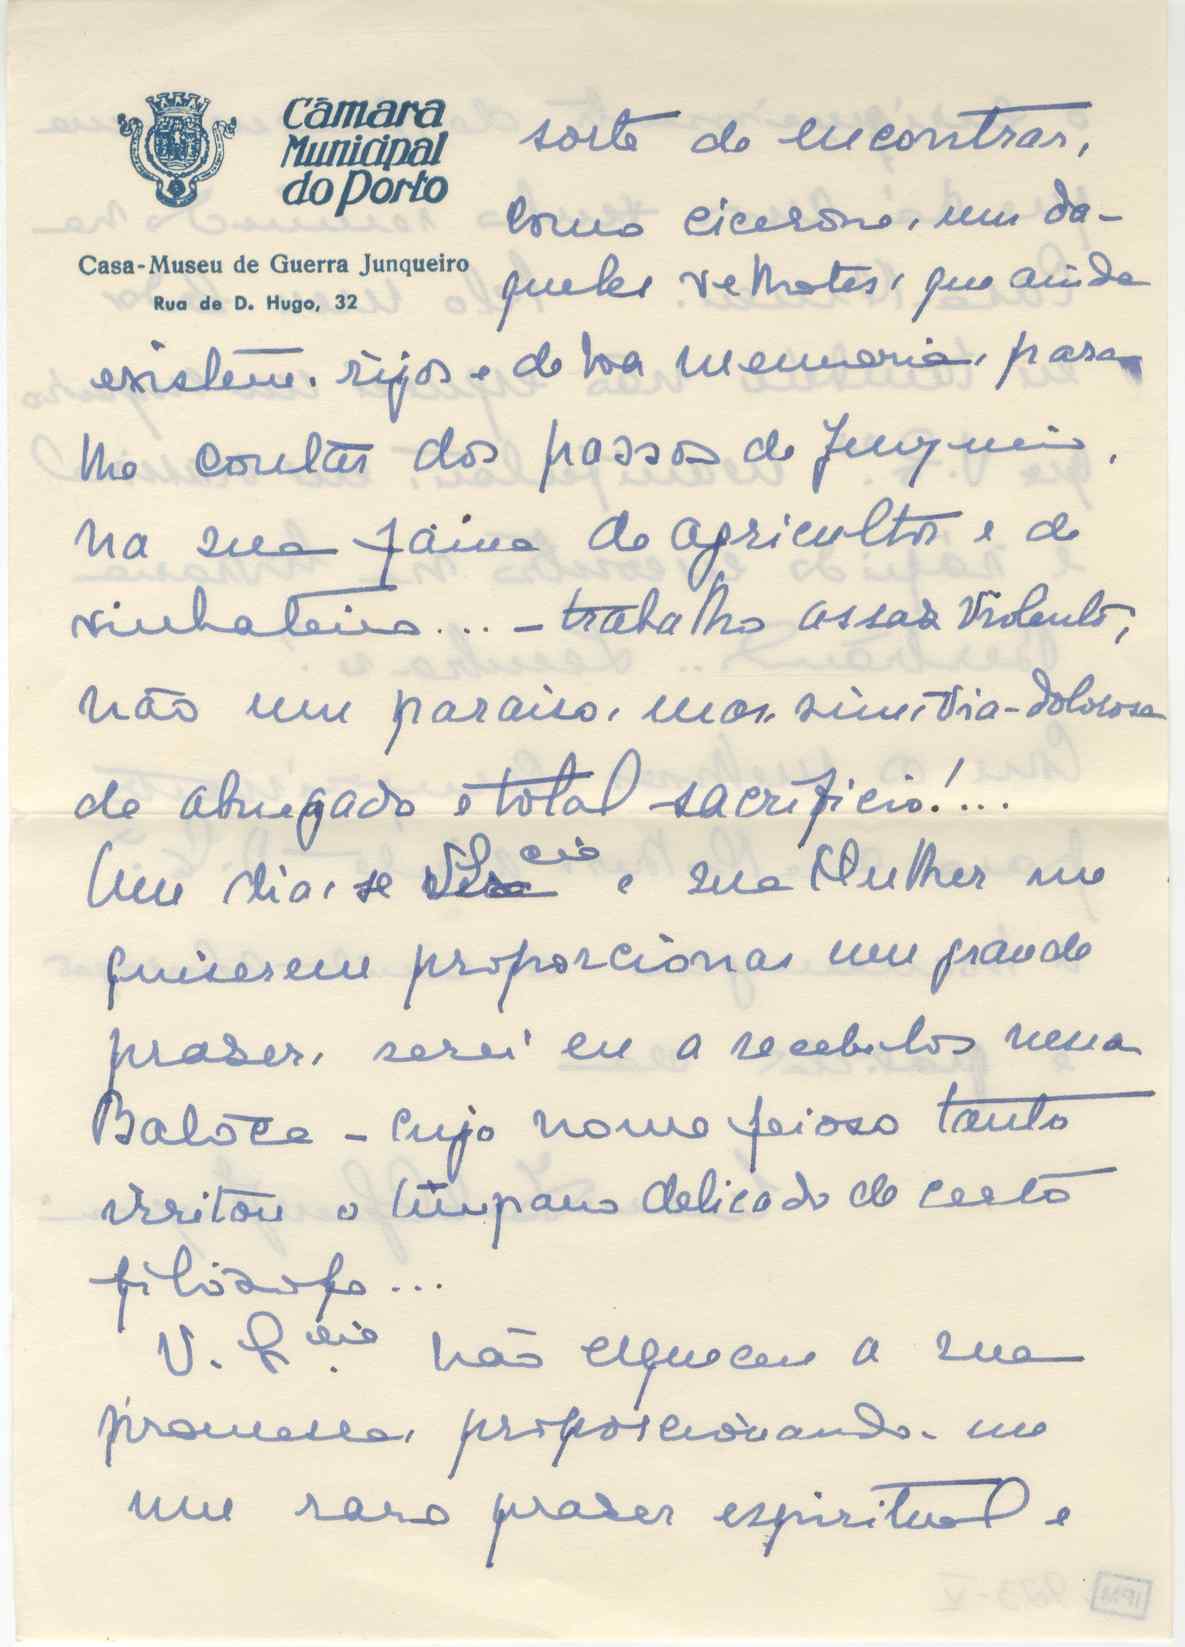 Câmara
Municipal
do Porto
Casa-Museu de Guerra Junqueiro
Rua de D. Hugo, 32
sorte de encontrar,
como cicerone, um da-
queles velhotes, que ainda
existem, rijos e de boa memoria, para
lhe contar dos passos de Junqueiro,
na sua faina de agricultor e de
vinhateiro... - trabalho assaz violento,
não um paraiso, mas, sim, via-dolorosa
de abnegado e total sacrifício!...
Um dia, se V. Ex.cia e sua Mulher me
quiserem proporcionar um grande
prazer, serei eu a recebe-los nessa
Batòca - cujo nome feioso tanto
irritou o tímpano delicado de certo
filósofo...
V. Ex.cia não esqueceu a sua
promessa, proporcionando-me
um raro prazer espiritual e
IPM